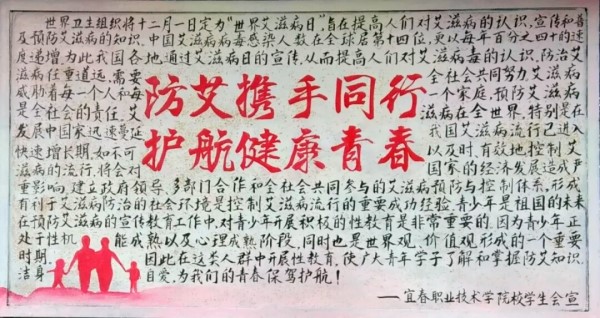 世界卫生组织将十二月一日定为“世界艾滋病日”旨在提高人们对艾滋病的认识.宣传和普
及预防艾滋病的知识.中国艾滋病病毒感染人数在全球居第十四位,更以每年百分之四十的速
度递增.为此我国各地,通过艾滋病日的宣传,从而提高人们对艾滋病毒的认识.防治艾
滋病任重道远,需要 全社会共同努力.艾滋病
威胁着每一个人和每 一个家庭,预防艾滋病
是全社会的责任.艾 滋病在全世界,特别是在
发展中国家迅速蔓延 我国艾滋病流行已进入
快速增长期,如不可 以及时,有效地控制艾
滋病的流行,将会对 国家的经济发展造成严
防艾携手同行
护航健康青春
重影响.建立政府领导,多部门合作和全社会共同参与的艾滋病预防与控制体系,形成
有利于艾滋病防治的社会环境是控制艾滋病流行的重要成功经验.青少年是祖国的未来
在预防艾滋病的宣传教育工作中,对青少年开展积极的性教育是非常重要的.因为青少年正
处于性机 能成熟以及心理成熟阶段,同时也是世界观,价值观形成的一个重要
时期. 因此在这类人群中开展性教育,使广大青年学子了解和掌握防艾知识.
洁身 自爱.为我们的青春保驾护航!
——宜春职业技术学院校学生会宣